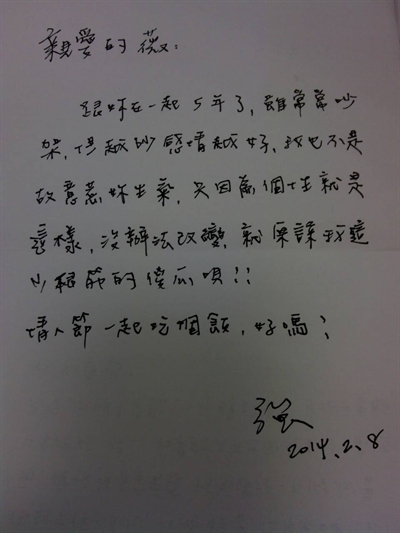 親愛的薇：
跟妳在一起5年了，雖常常吵
架，但越吵感情越好，我也不是
故意惹妳生氣，只因為個性就是
這樣，沒辦法改變，就原諒我這
少根筋的傻瓜唄!!
情人節一起吃個飯，好嗎？
強
2014.2.8